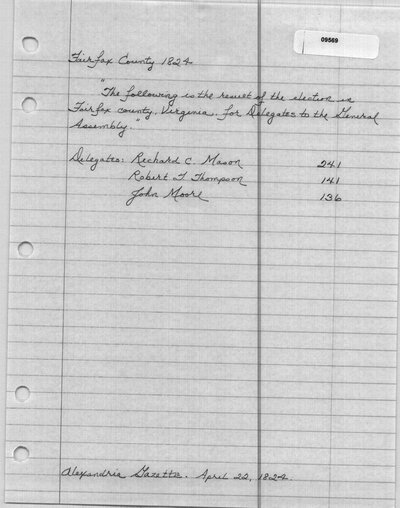 09569
Fairfax County 1824
"The following is the result of the election in
Fairfax county, Virginia, for Delegates to the General
Assembly."
Delegates: Richard C. Mason 241
Robert T Thompson 141
John Moore 136
Alexandria Gazette. April 22, 1824.